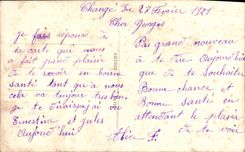 Changé le 27 Février 1921
Cher Georges
je fais réponse à
ta carte qui nous
a fait grand plaisir
de te savoir en bonne
santé tant qu'a nous
cela va toujours très bon
je te dirais j'ai vu
Ernestine et Jules
Aujourd'hui
Pas grand nouveau
à te dire Aujourd'hui
que de te Souhaiter
Bonne chance et
Bonne Santé en
attendant le plaisir
de te voir
Alice F.